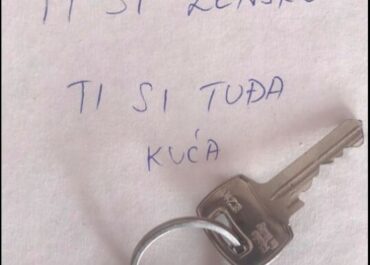 TI SI ŽENSKO
TI SI TUĐA
KUĆA